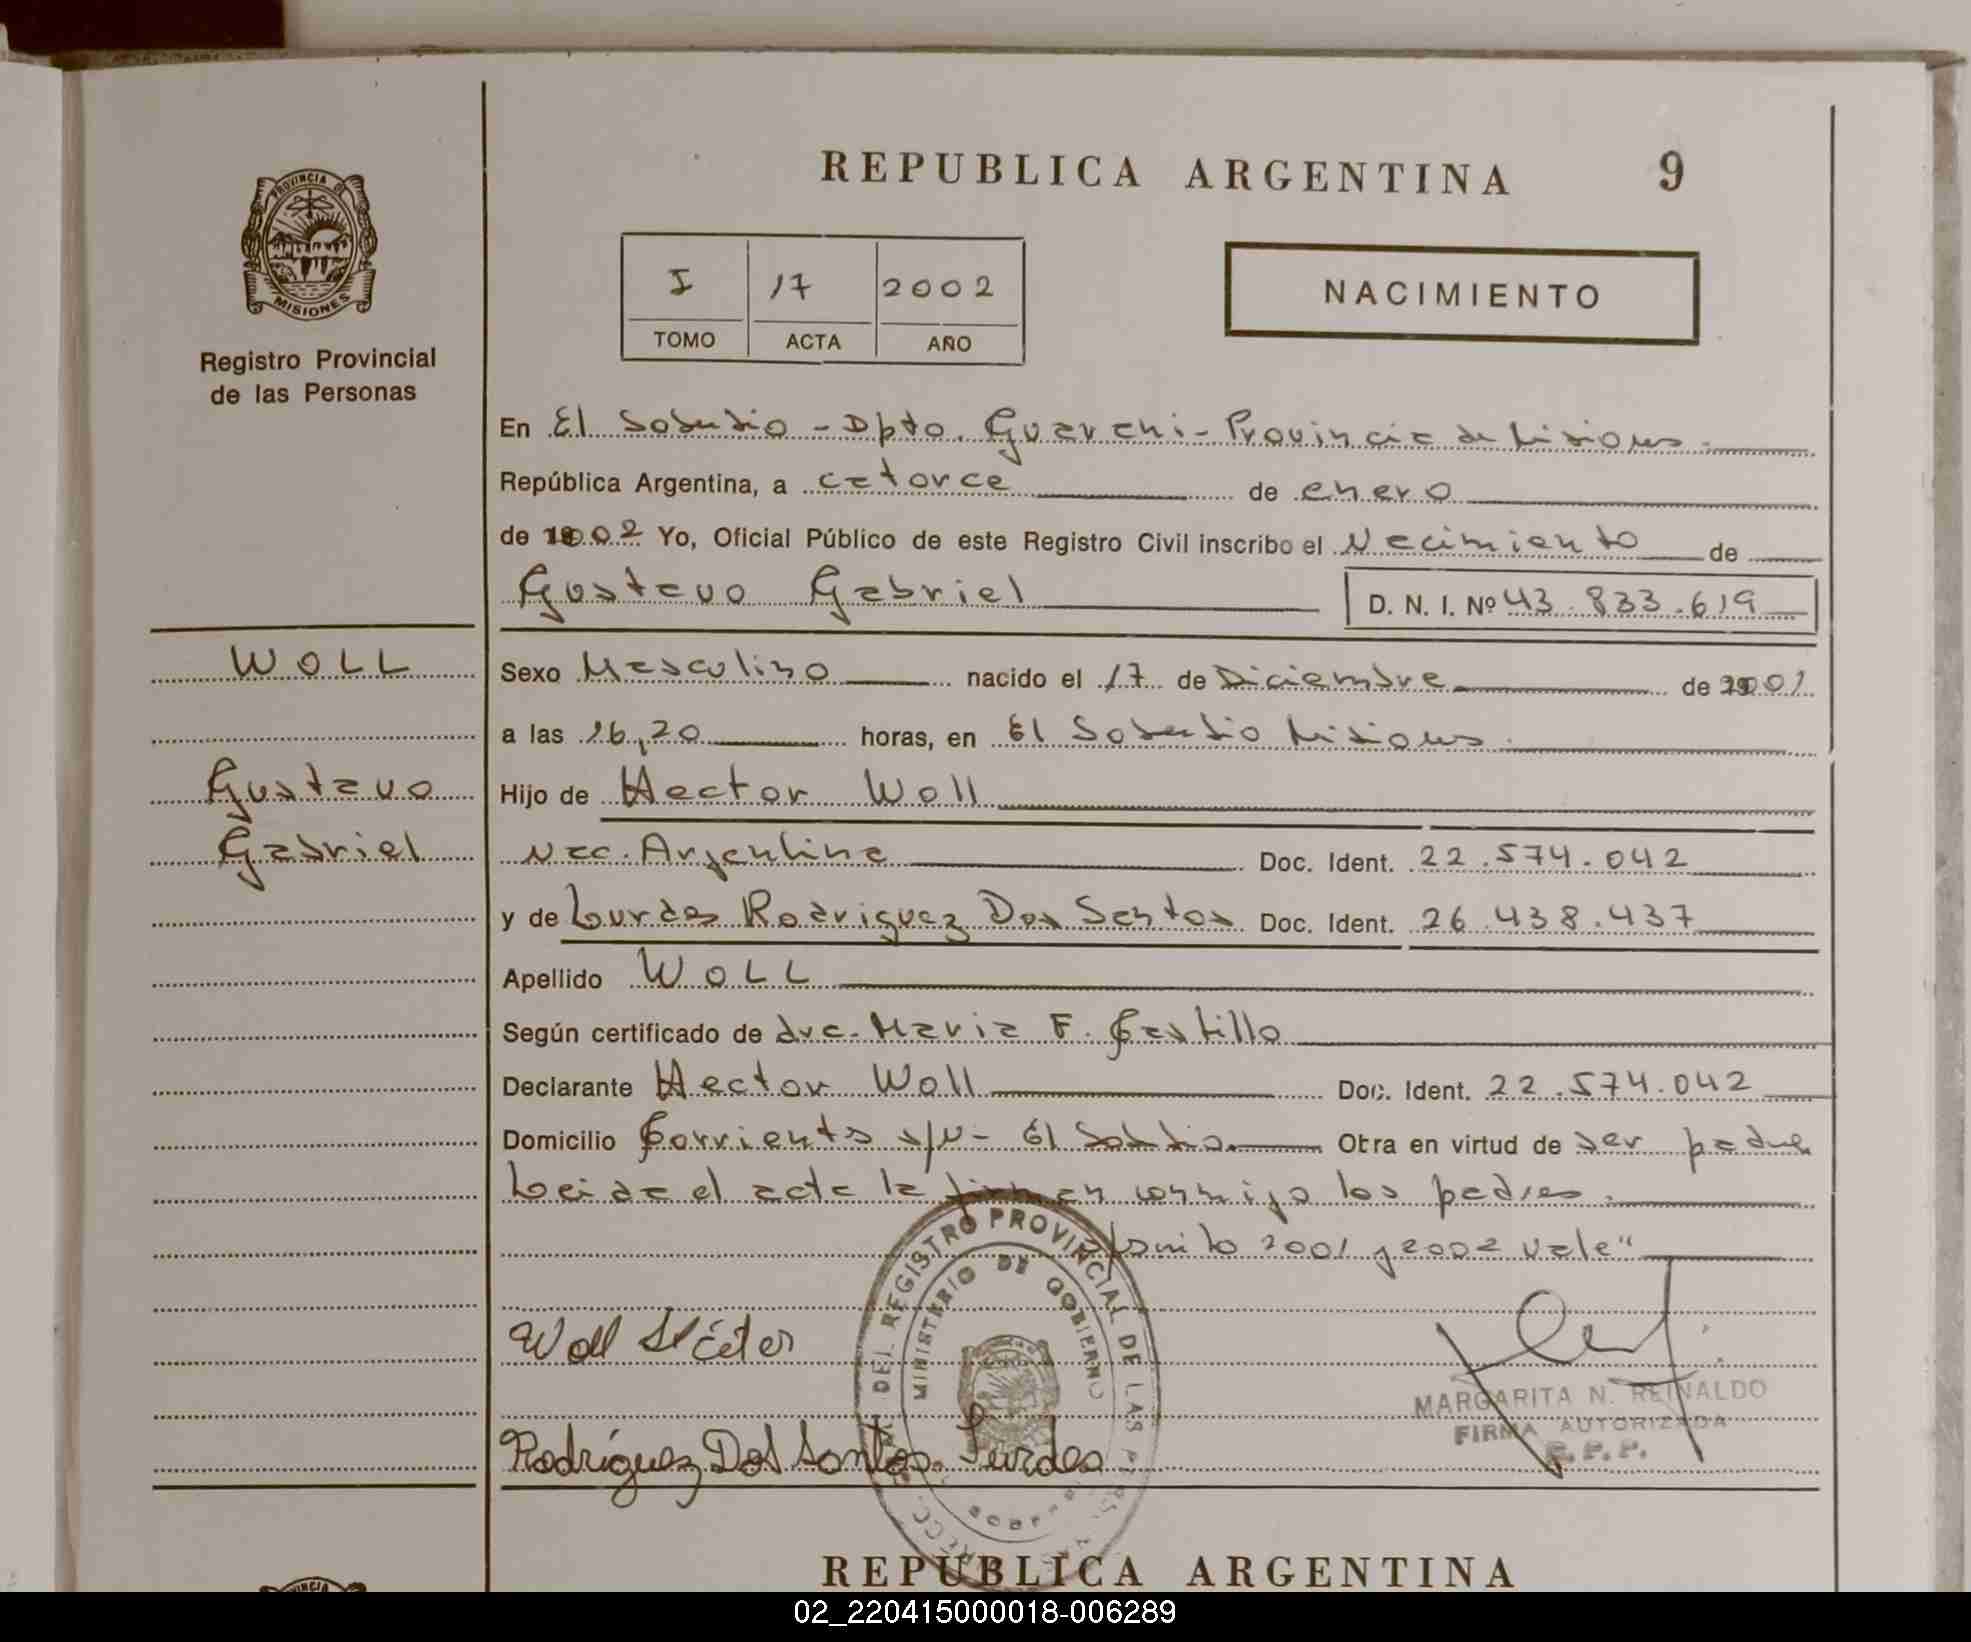 REPUBLICA ARGENTINA 9
PROVINCIA DE
MISIONES
Registro Provincial
de las Personas
I 17 2002
TOMO ACTA AÑO
NACIMIENTO
En El Soberbio - Dpto. Guarani - Provincia de Misiones.
República Argentina, a catorce de enero
de 2002 Yo, Oficial Público de este Registro Civil inscribo el Nacimiento de
Gustavo Gabriel D. N. I. Nº 43.833.619
WOLL
Gustavo
Gabriel
Sexo Masculino nacido el 17 de Diciembre de 2001
a las 16,20 horas, en El Soberbio Misiones.
Hijo de Hector Woll
Nac. Argentina Doc. Ident. 22.574.042
y de Lurdes Rodriguez Dos Santos Doc. Ident. 26.438.437
Apellido WOLL
Según certificado de dra. Maria F. Castillo
Declarante Hector Woll Doc. Ident. 22.574.042
Domicilio Corrientes s/n - El Soberbio Otra en virtud de ser padre
Leida el acta la firman conmigo los padres.
2001 y 2002 vale"
Woll Héctor
MARGARITA N. REINALDO
FIRMA AUTORIZADA
R.P.P.
Rodríguez Dos Santos Lurdes
DEL REGISTRO PROVINCIAL DE LAS
MINISTERIO DE GOBIERNO
REPUBLICA ARGENTINA
02_220415000018-006289